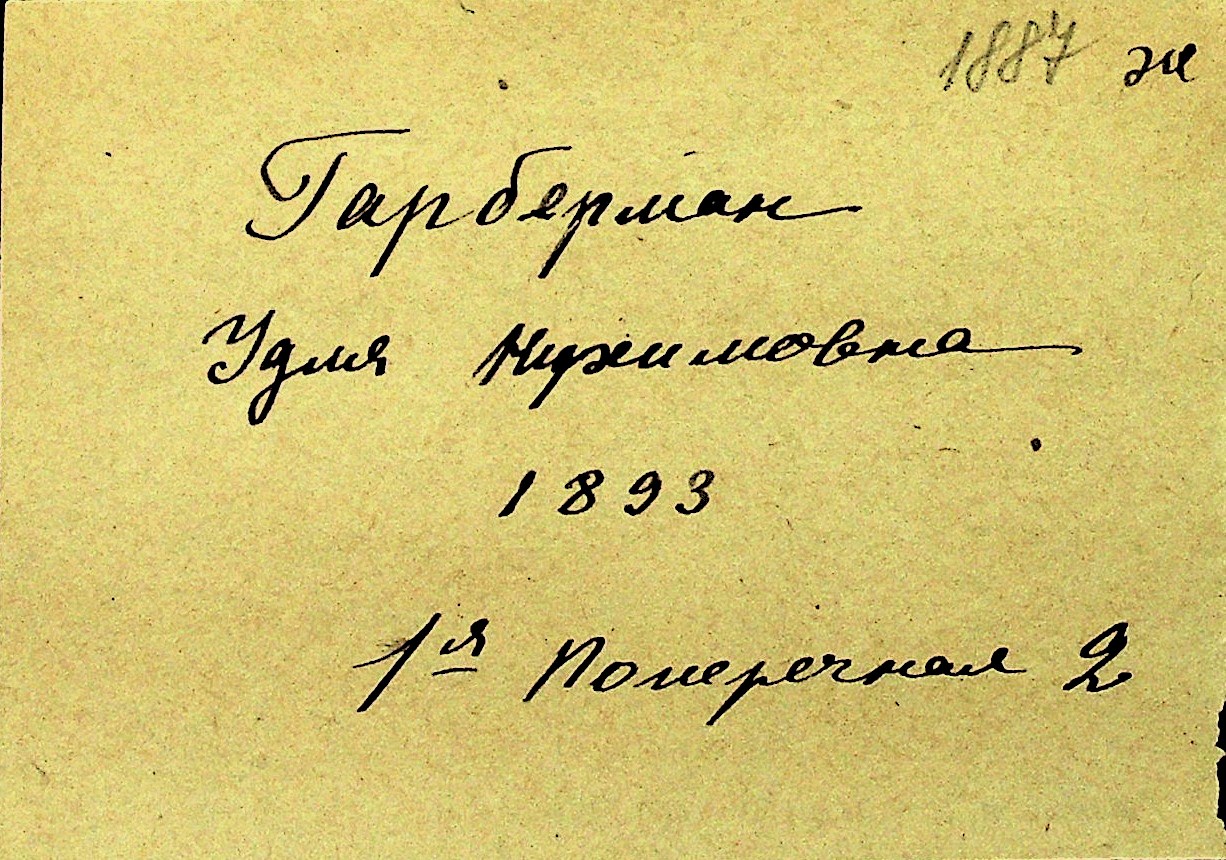 1887 ж
Гарберман
Удля Нухимовна
1893
1я Поперечная 2